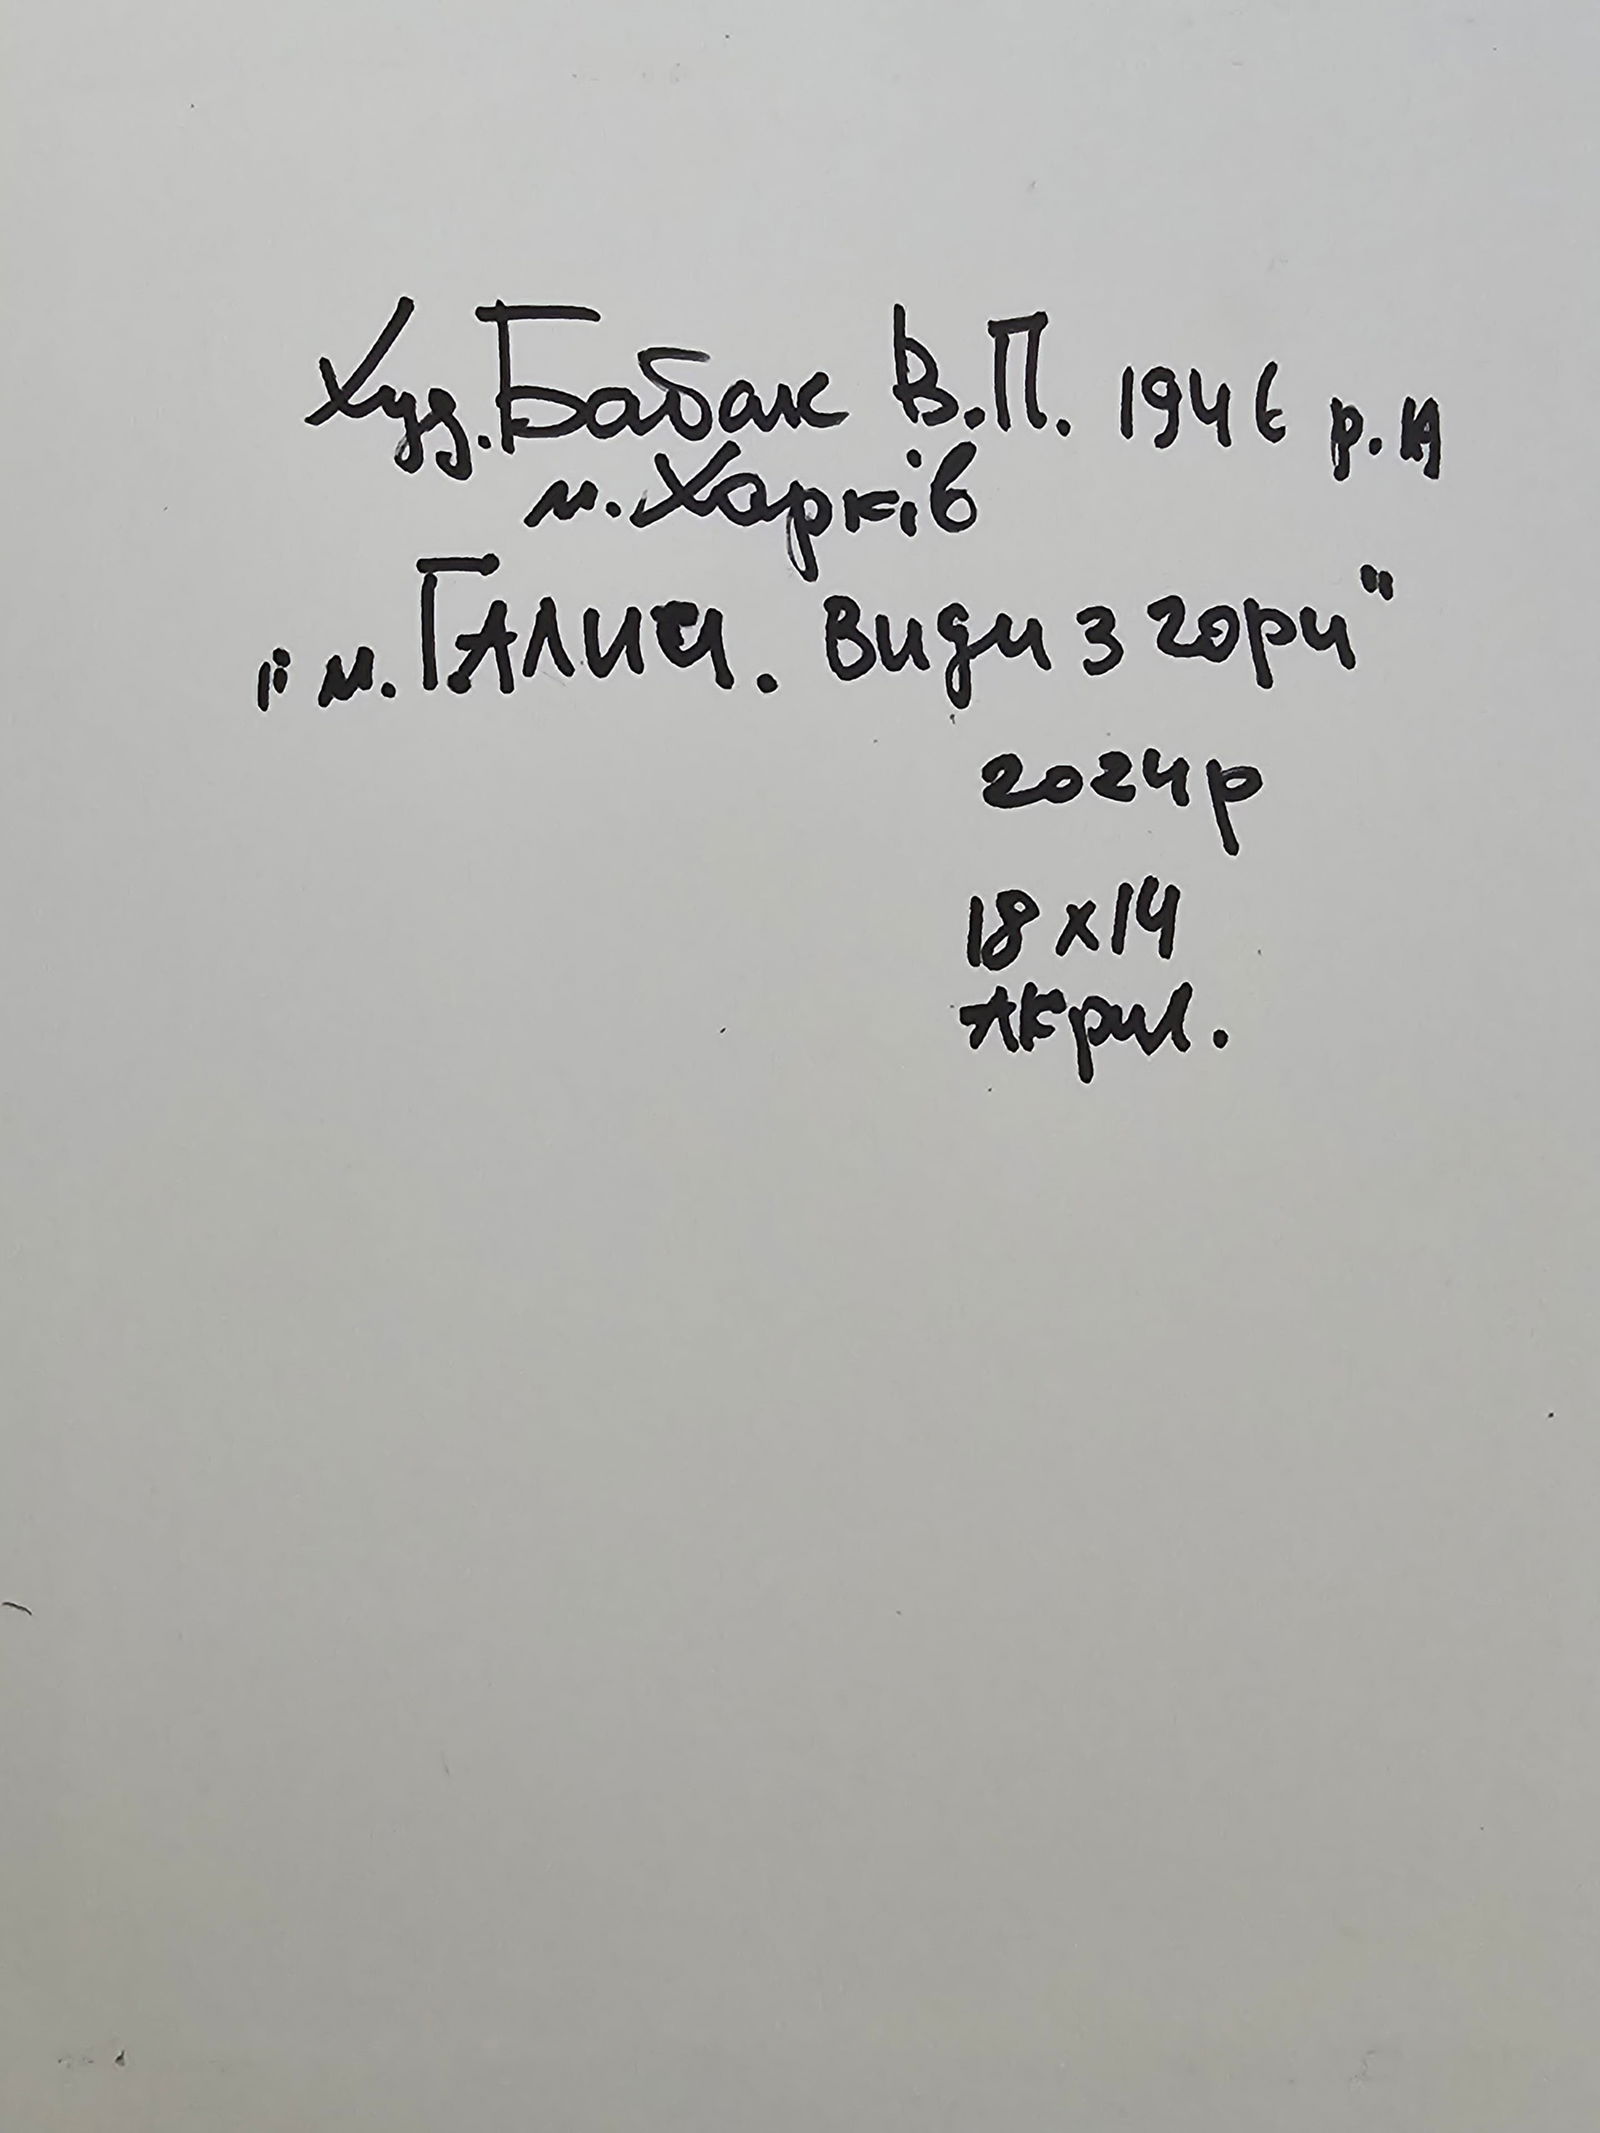 Худ. Бабак В.П. 1946 р.н
м. Харків
"м. Галич. види з гори"
2024р
18х14
Акрил.